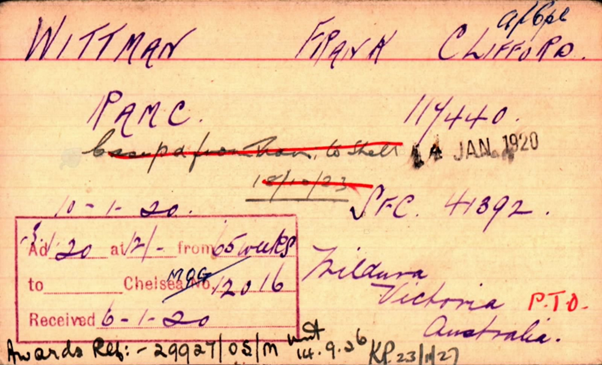 a/Cpl
WITTMAN FRANK CLIFFORD.
RAMC. 117440.
to Chels 14 JAN. 1920
18/10/23
10-1-20. SFC. 41392.
Ad 1/20 at 12/- from 65 weeks
to Chelsea No. 12016
Received 6-1-20
Mildura
Victoria P.T.O.
Australia.
Awards Ref:- 29927/05/M 14.9.26 KP. 23/11/27